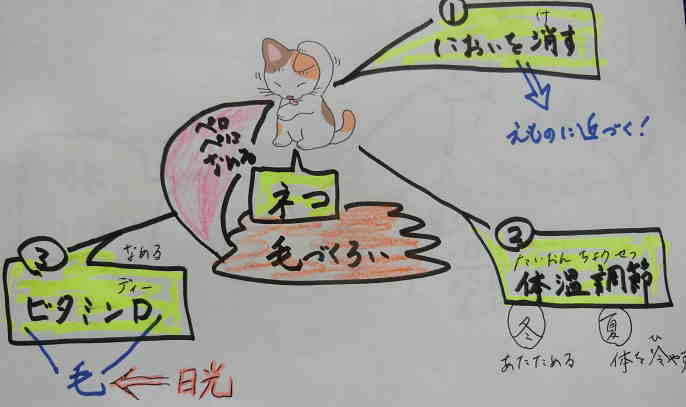 ①
け
においを消す
えものに近づく!
ペロ
ペロ
なめる
ネコ
毛づくろい
②
たいおんちょうせつ
体温調節
冬
あたためる
夏
ひ
体を冷やす
③
なめる
ディー
ビタミンD
毛
日光